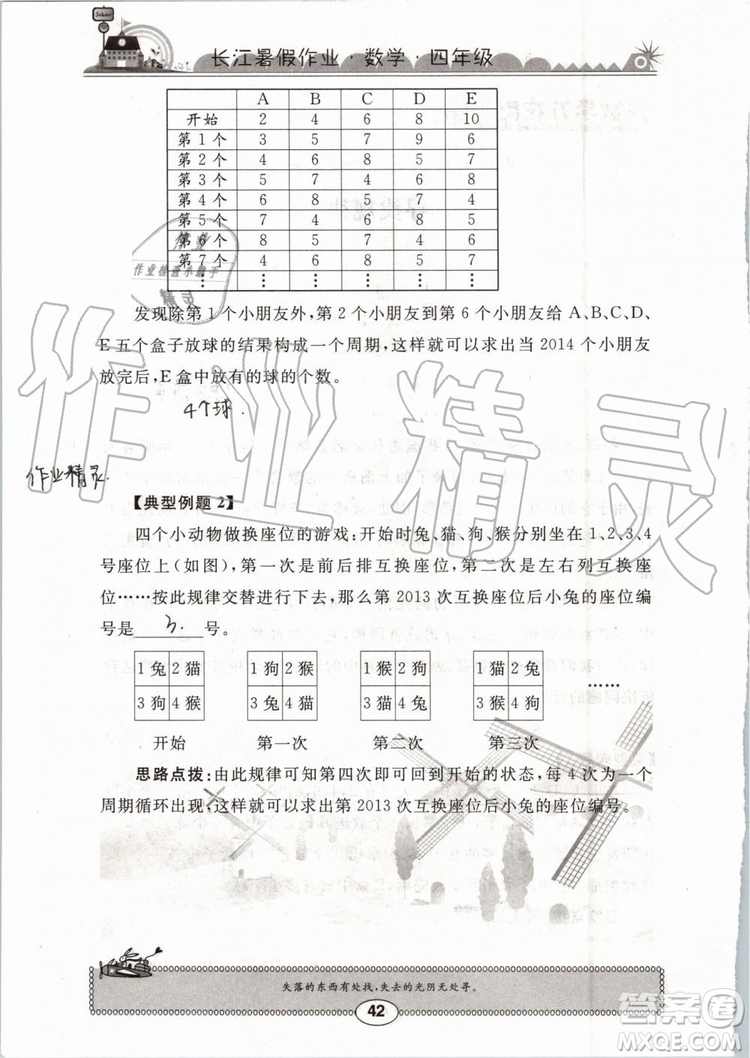 School
长江暑假作业·数学·四年级
A B C D E
开始 2 4 6 8 10
第1个 3 5 7 9 6
第2个 4 6 8 5 7
第3个 5 7 4 6 8
第4个 6 8 5 7 4
第5个 7 4 6 8 5
第6个 8 5 7 4 6
第7个 4 6 8 5 7
⋮ ⋮ ⋮ ⋮ ⋮ ⋮
发现除第1个小朋友外,第2个小朋友到第6个小朋友给A、B、C、D、
E五个盒子放球的结果构成一个周期,这样就可以求出当2014个小朋友
放完后,E盒中放有的球的个数。
4个球.
作业精灵
【典型例题2】
四个小动物做换座位的游戏:开始时兔、猫、狗、猴分别坐在1、2、3、4
号座位上(如图),第一次是前后排互换座位,第二次是左右列互换座
位……按此规律交替进行下去,那么第2013次互换座位后小兔的座位编
号是 3. 号。
1兔 2猫 1狗 2猴 1猴 2狗 1猫 2兔
3狗 4猴 3兔 4猫 3猫 4兔 3猴 4狗 ……
开始 第一次 第二次 第三次
思路点拨:由此规律可知第四次即可回到开始的状态,每4次为一个
周期循环出现,这样就可以求出第2013次互换座位后小兔的座位编号。
失落的东西有处找,失去的光阴无处寻。
42
作业
作业检查小助手
精灵
作业精灵
答案圈
MXQE.COM